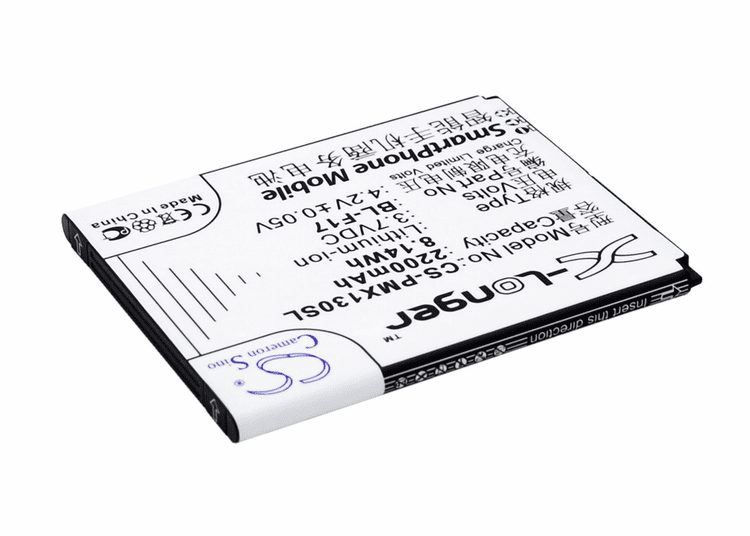 X-Longer™
型号Model No.: CS-PMX130SL
容量Capacity 2200mAh
8.14Wh
规格Type Lithium-Ion
电压Volts 3.7VDC
编号Part No. BL-F17
充电限制电压
Charge Limited Volts 4.2V±0.05V
SmartPhone Mobile
智能手机商务电池
CS
Cameron Sino
Made in China
Insert this direction